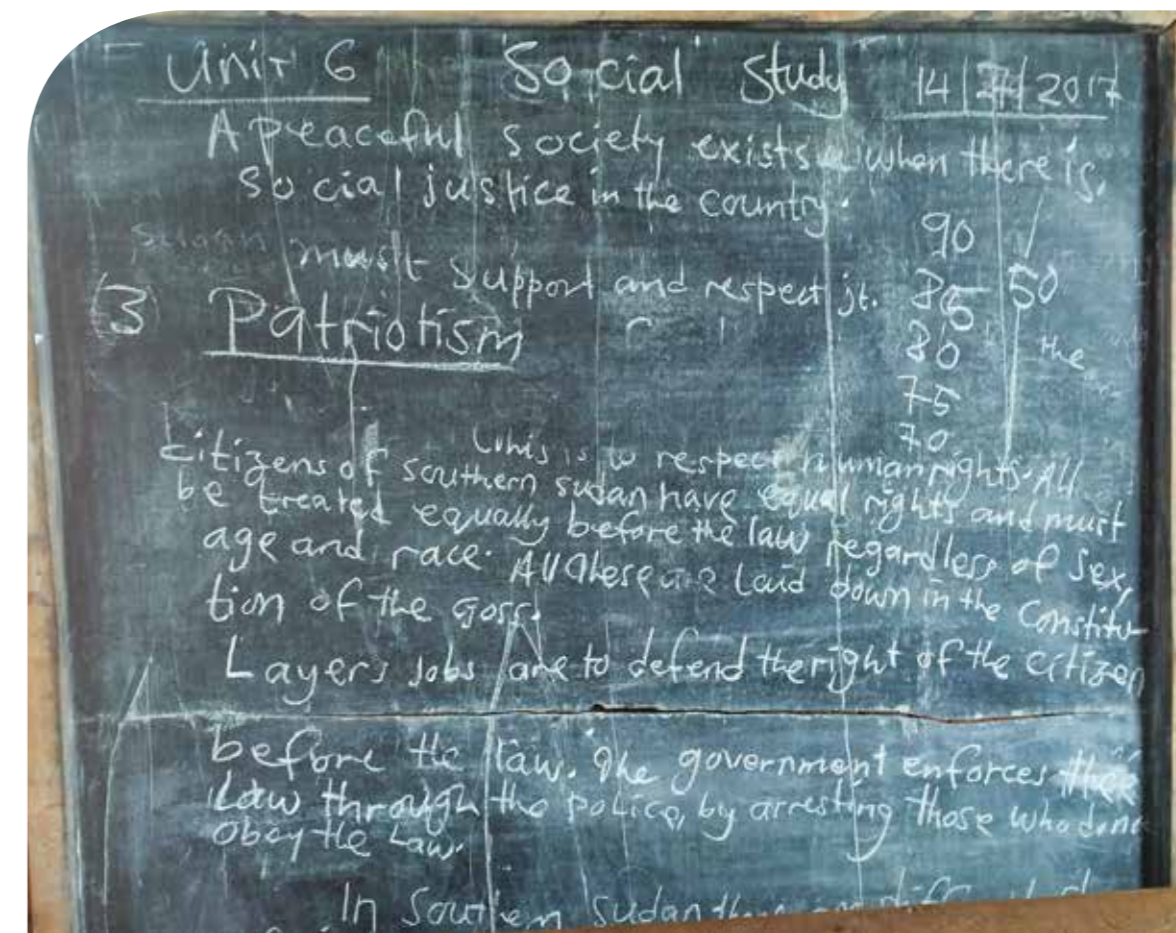 Unit 6 Social Study 14/ /2017
A peaceful society exists when there is,
social justice in the country.
90
must support and respect it. 50
(3 Patriotism
80 the
75
70
This is to respect human rights. All
citizens of southern sudan have equal rights and must
be treated equally before the law regardless of sex,
age and race. All these are laid down in the Constitu-
tion of the Goss.
Layers jobs are to defend the right of the citizen
before the law. The government enforces the
law through the police, by arresting those who dont
obey the Law.
In Southern sudan